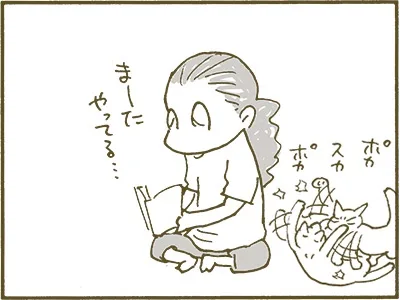 まーた
やってる…
ポカ
スカ
ポカ